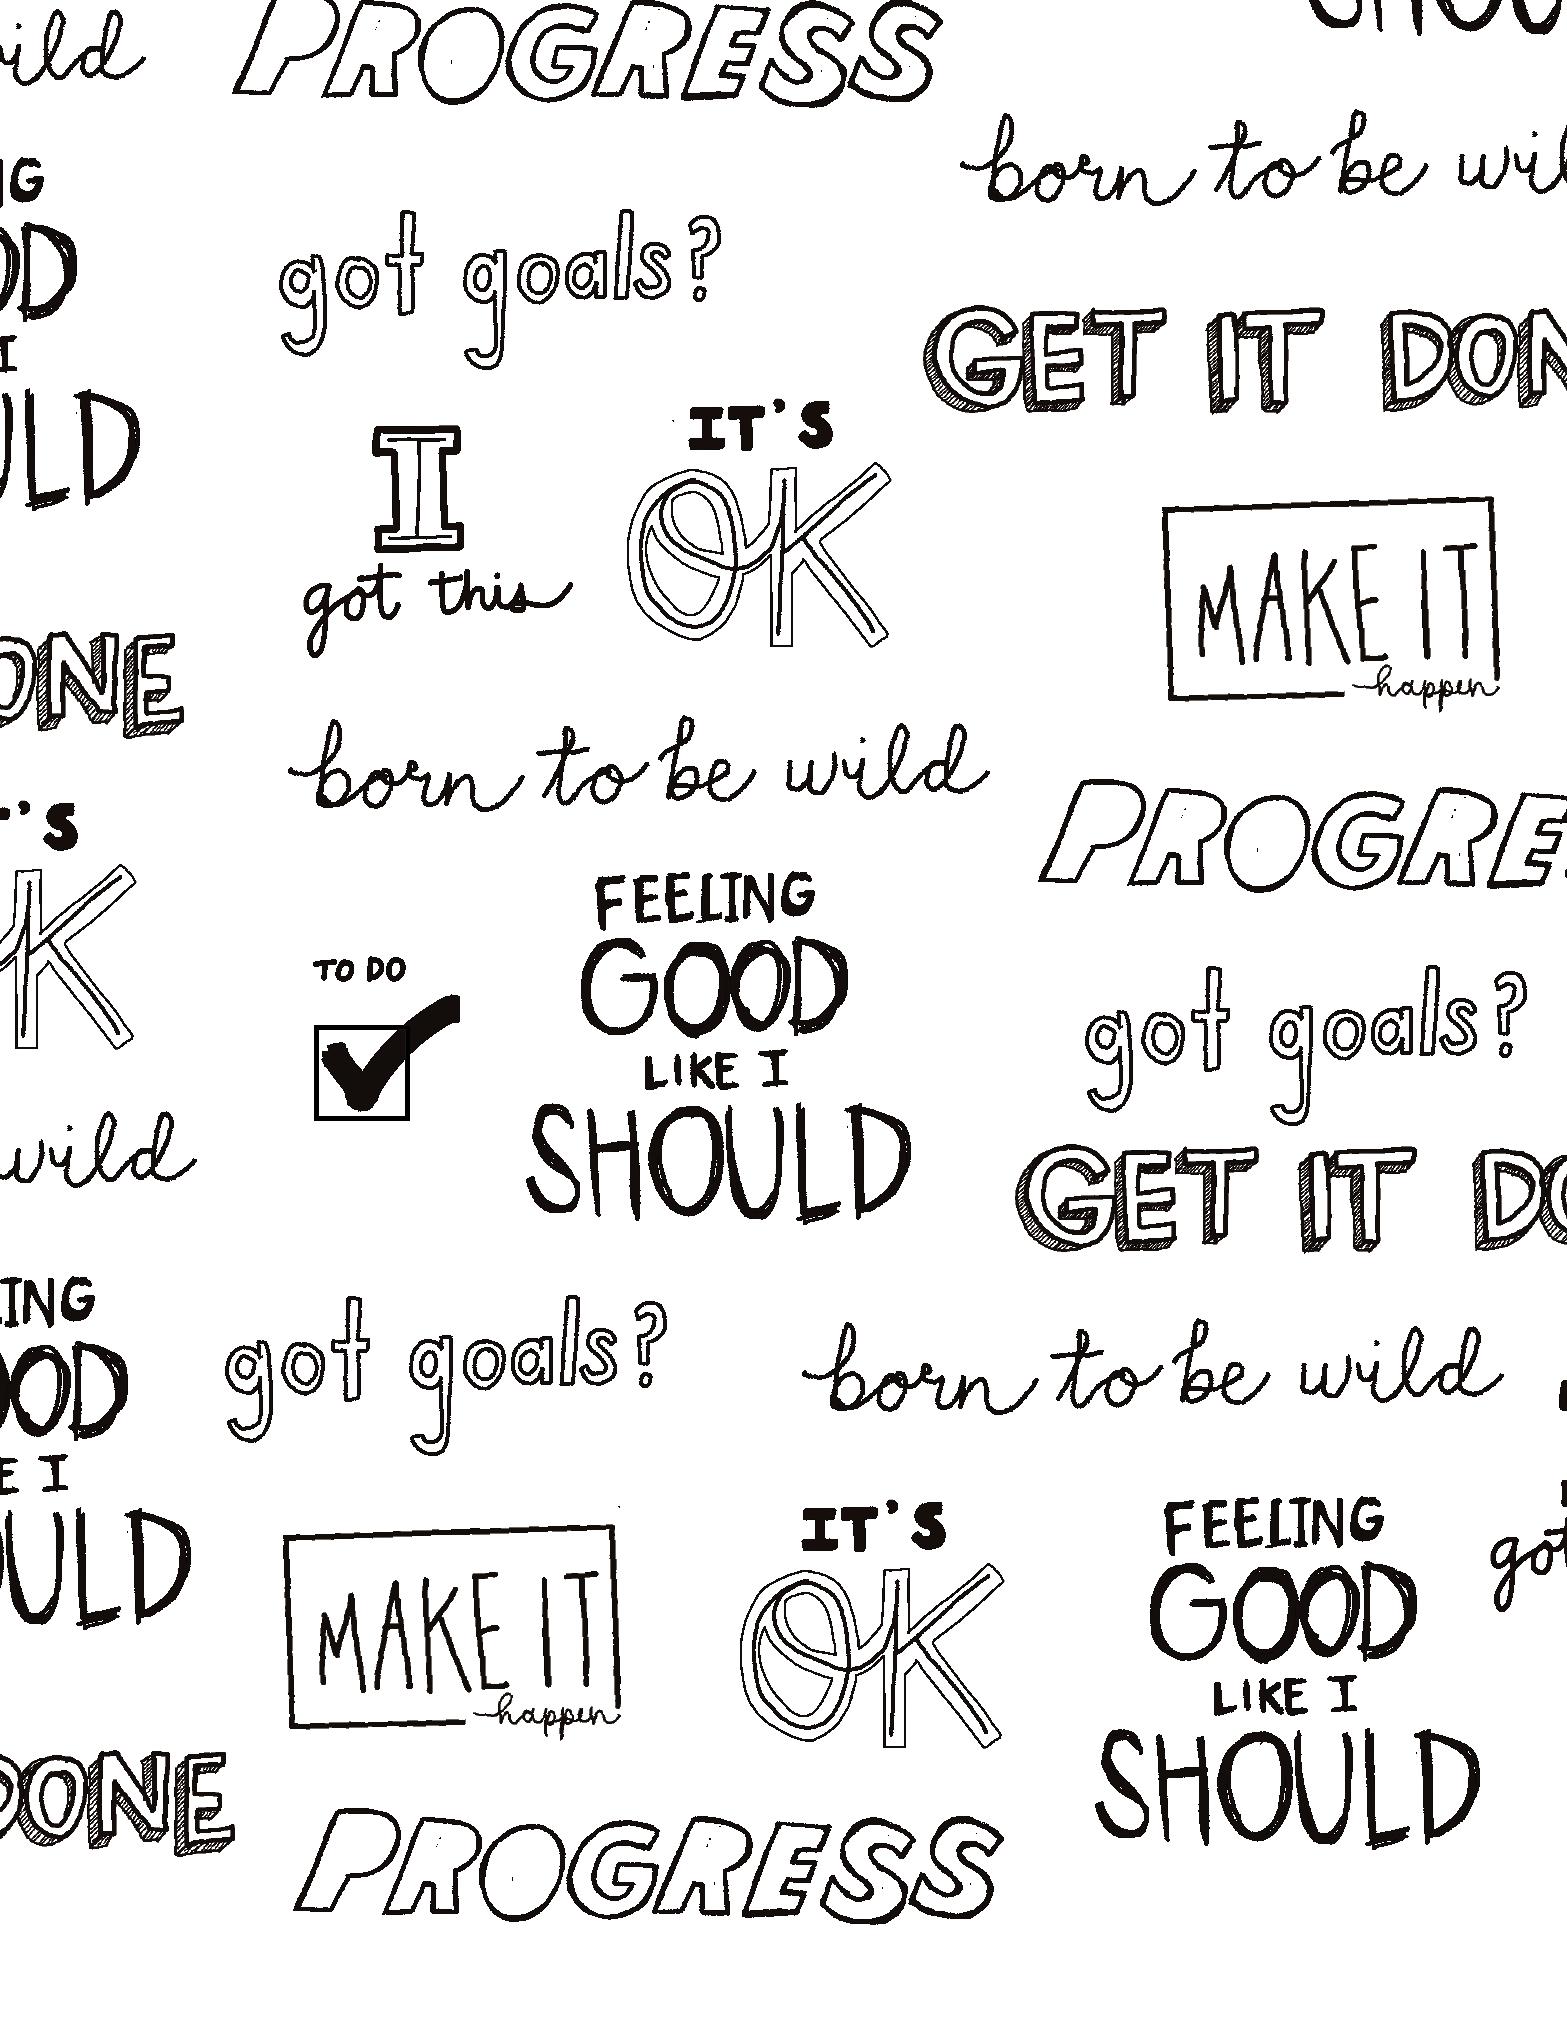 ild
PROGRESS
born to be wil
NG
OD
I
ULD
got goals?
GET IT DON
IT'S
OK
I
got this
MAKE IT
happen
ONE
born to be wild
'S
K
PROGRE
FEELING
GOOD
LIKE I
SHOULD
TO DO
got goals?
wild
GET IT DO
ING
OOD
E I
OULD
got goals?
born to be wild
MAKE IT
happen
IT'S
OK
FEELING
GOOD
LIKE I
SHOULD
got
DONE
PROGRESS